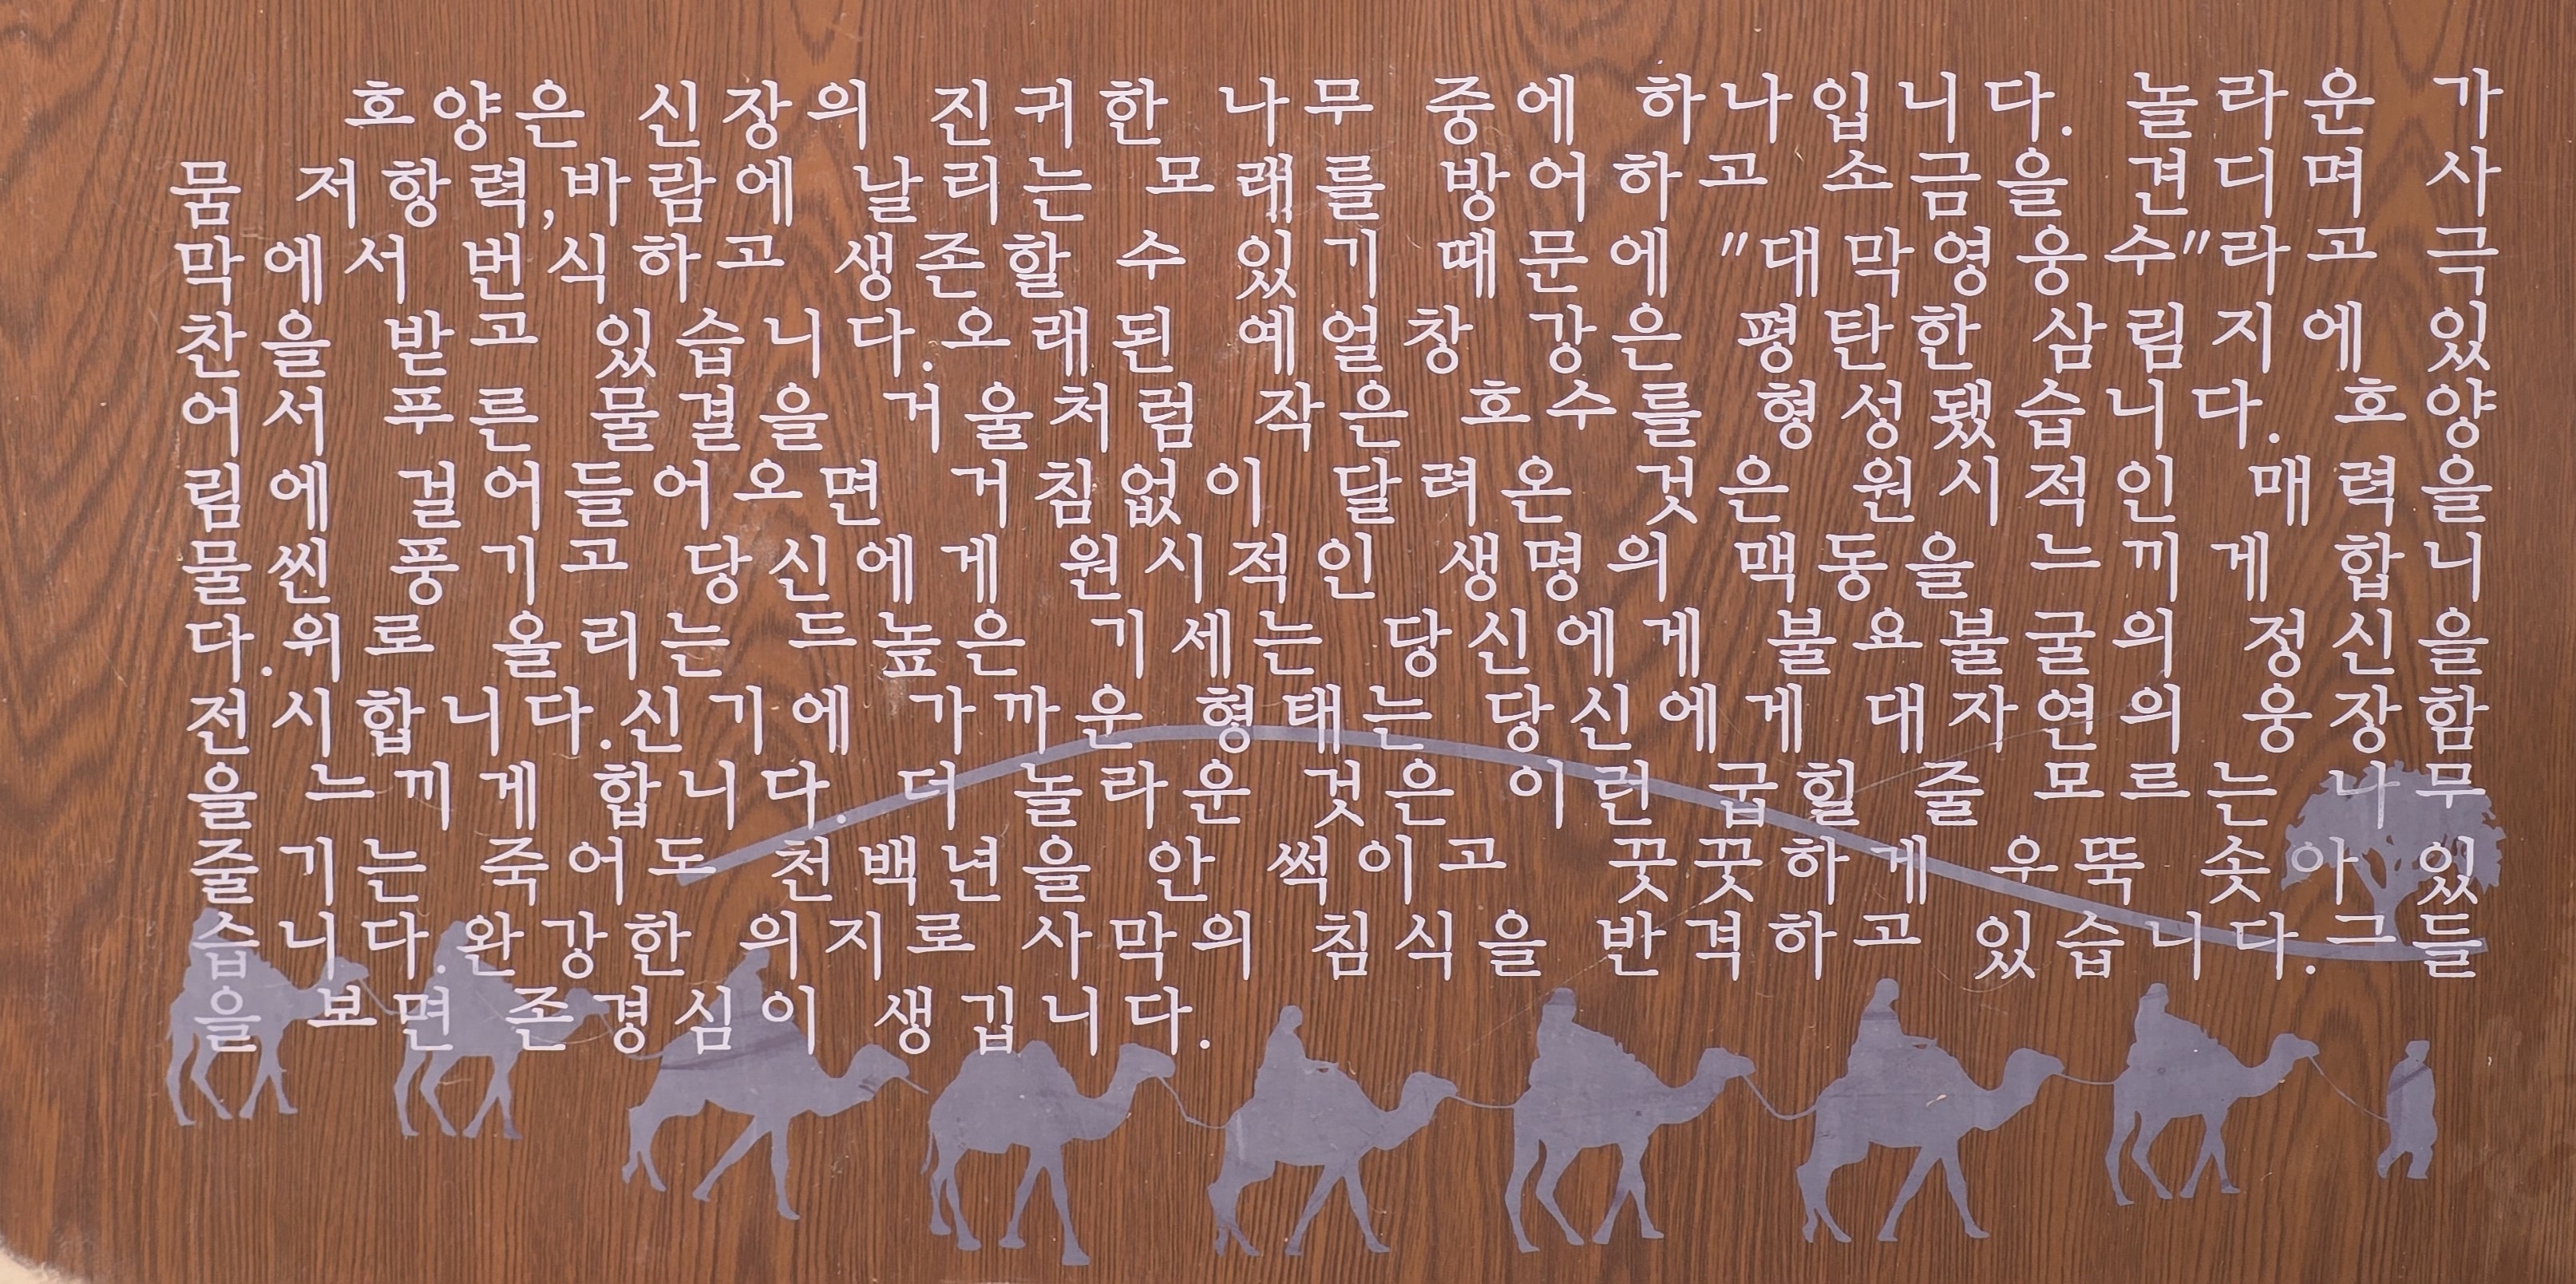 호양은 신장의 진귀한 나무 중에 하나입니다. 놀라운 가
뭄 저항력,바람에 날리는 모래를 방어하고 소금을 견디며 사
막에서 번식하고 생존할 수 있기 때문에 "대막영웅수"라고 극
찬을 받고 있습니다.오래된 예얼창 강은 평탄한 삼림지에 있
어서 푸른 물결을 거울처럼 작은 호수를 형성됐습니다. 호양
림에 걸어들어오면 거침없이 달려온 것은 원시적인 매력을
물씬 풍기고 당신에게 원시적인 생명의 맥동을 느끼게 합니
다.위로 올리는 드높은 기세는 당신에게 불요불굴의 정신을
전시합니다.신기에 가까운 형태는 당신에게 대자연의 웅장함
을 느끼게 합니다. 더 놀라운 것은 이런 굽힐 줄 모르는 나무
줄기는 죽어도 천백년을 안 썩이고 꿋꿋하게 우뚝 솟아 있
습니다.완강한 의지로 사막의 침식을 반격하고 있습니다.그들
을 보면 존경심이 생깁니다.